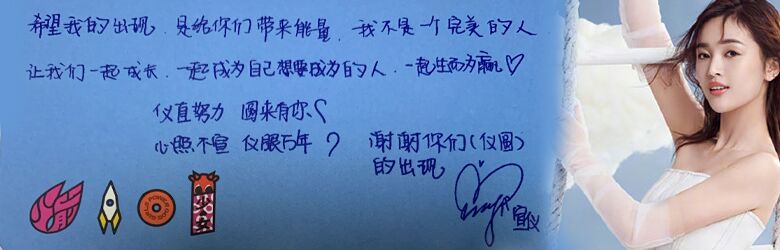 希望我的出现 是给你们带来能量 我不是一个完美的人
让我们一起成长,一起成为自己想要成为的人,一起生而为赢♡
仪直努力 圆来有你
心照不宣 仪眼万年
谢谢你们(仪圆)
的出现
宣仪
火箭
少女